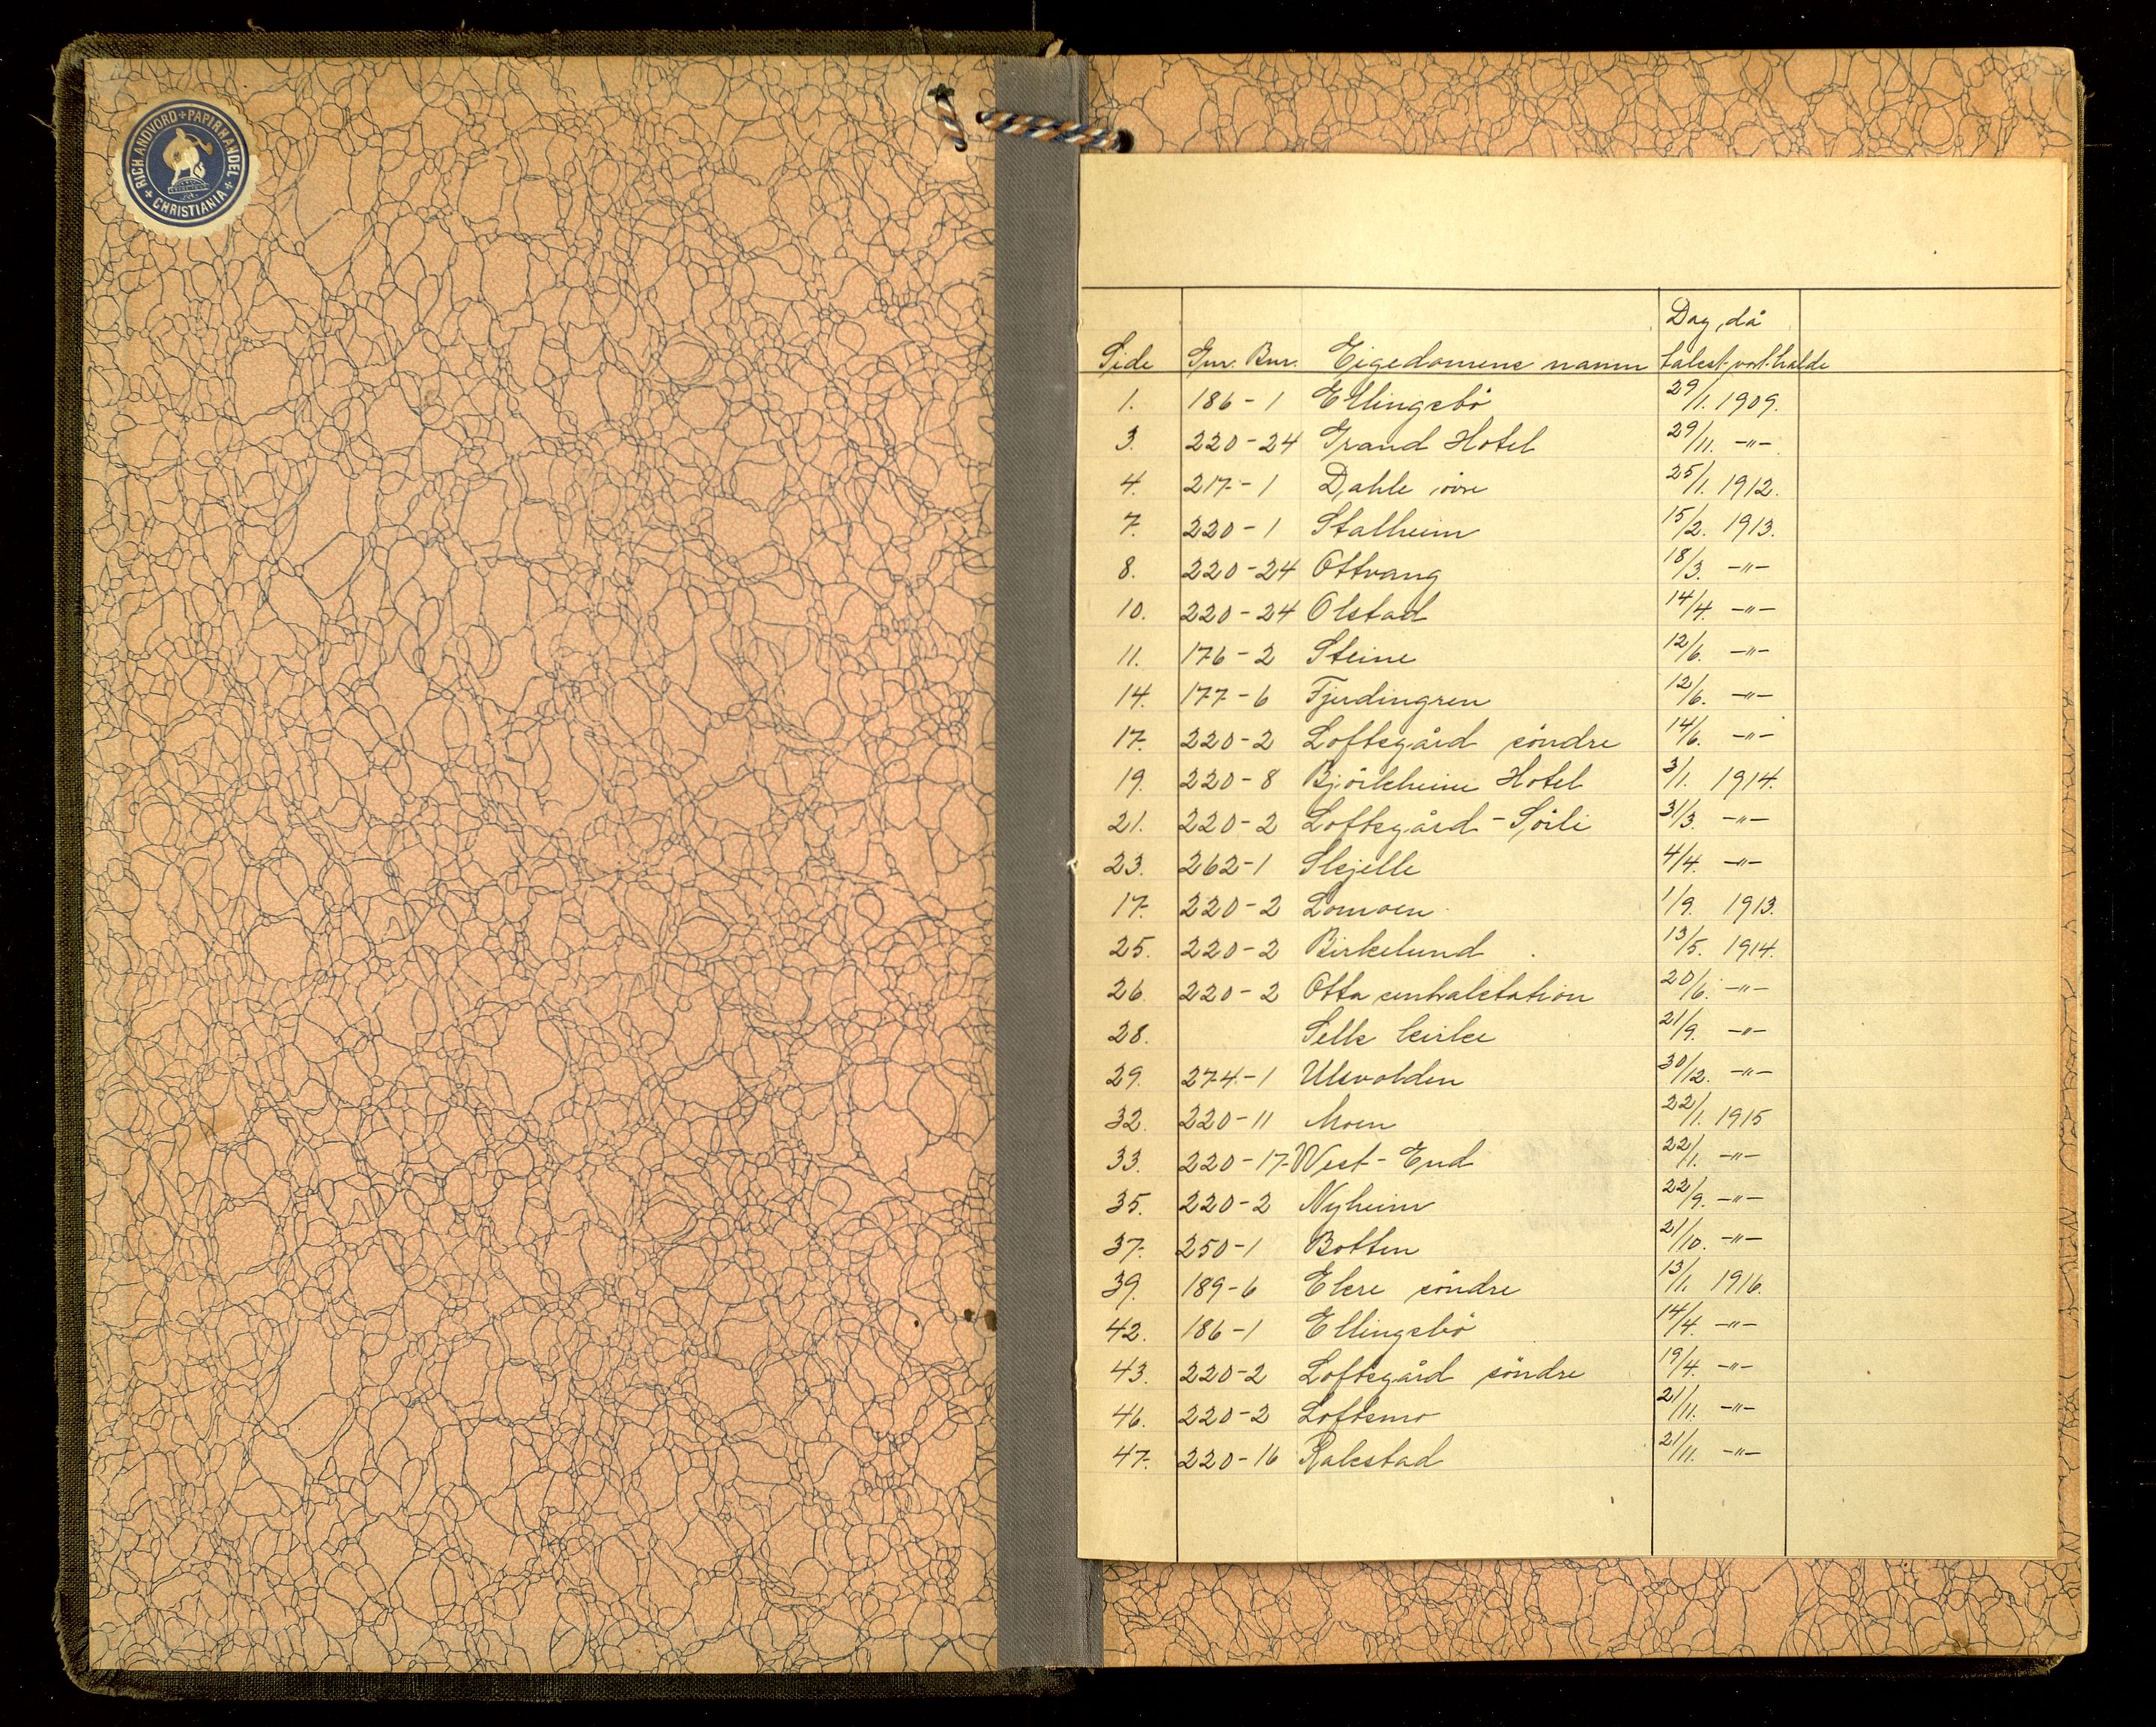 RICH. ANDVORD + PAPIRHANDEL + CHRISTIANIA +
Dag, då
Side Gnr. Bnr. Eigedomens namn takst vort halde
1. 186-1 Ellingsbö 29/1. 1909.
3. 220-24 Grand Hotel 29/11. -"-
4. 217-1 Dahle övre 25/1. 1912.
7. 220-1 Stalheim 15/2. 1913.
8. 220-24 Ottvang 18/3. -"-
10. 220-24 Olstad 14/4. -"-
11. 176-2 Steine 12/6. -"-
14. 177-6 Fjerdingren 12/6. -"-
17. 220-2 Loftsgård söndre 14/6. -"-
19. 220-8 Bjölkheim Hotel 3/1. 1914.
21. 220-2 Loftsgård - Sörli 31/3. -"-
23. 262-1 Skjelle 4/4. -"-
17. 220-2 Lomoen 1/9. 1913.
25. 220-2 Birkelund 13/5. 1914.
26. 220-2 Otta sentralstation 20/6. -"-
28. Selk kirke 21/9. -"-
29. 274-1 Ulsvolden 30/12. -"-
32. 220-11 Moen 22/1. 1915
33. 220-17 West-End 22/1. -"-
35. 220-2 Nyheim 22/9. -"-
37. 250-1 Botten 21/10. -"-
39. 189-6 Ekre söndre 13/1. 1916.
42. 186-1 Ellingsbö 14/4. -"-
43. 220-2 Loftsgård söndre 19/4. -"-
46. 220-2 Loftsmo 21/11. -"-
47. 220-16 Rakstad 21/11. -"-